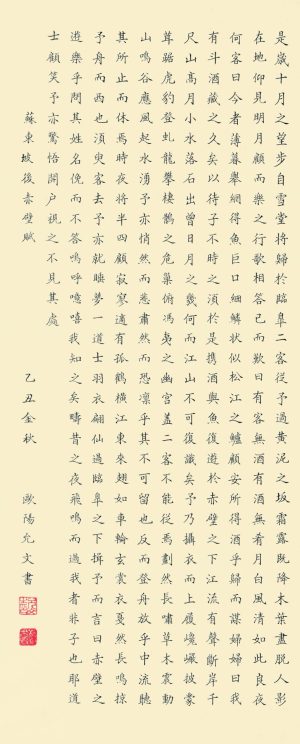 是歲十月之望步自雪堂將歸於臨皋二客從予過黃泥之坂霜露既降木葉盡脫人影
在地仰見明月顧而樂之行歌相答已而歎曰有客無酒有酒無肴月白風清如此良夜
何客曰今者薄暮舉網得魚巨口細鱗狀似松江之鱸顧安所得酒乎歸而謀婦婦曰我
有斗酒藏之久矣以待子不時之須於是攜酒與魚復遊於赤壁之下江流有聲斷岸千
尺山高月小水落石出曾日月之幾何而江山不可復識矣予乃攝衣而上履巉巖披蒙
茸踞虎豹登虬龍攀棲鶻之危巢俯馮夷之幽宮蓋二客不能從焉劃然長嘯草木震動
山鳴谷應風起水湧予亦悄然而悲肅然而恐凜乎其不可留也反而登舟放乎中流聽
其所止而休焉時夜將半四顧寂寥適有孤鶴橫江東來翅如車輪玄裳衣戛然長鳴掠
予舟而西也須臾客去予亦就睡夢一道士羽衣翩仙過臨皋之下揖予而言曰赤壁之
遊樂乎問其姓名俛而不答嗚呼噫嘻我知之矣疇昔之夜飛鳴而過我者非子也耶道
士顧笑予亦驚悟開戶視之不見其處
蘇東坡後赤壁賦
乙丑金秋
歐陽允文書